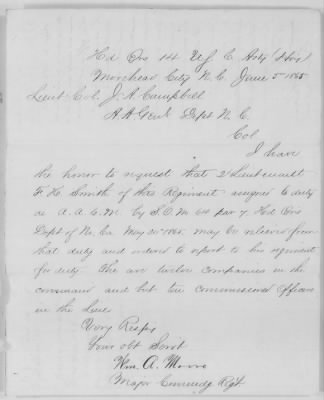 Hd Qrs 14 U.S. C. Arty (Hvy)
Morehead City N.C. June 5 1865
Lieut Col J. A. Campbell
A A Genl Dept N. C.
Col
I have
the honor to request that 2 Lieutenant
F. H. Smith of this Regiment assigned to duty
as A. A. Q. M. by S.O. No 64 par 7 Hd Qrs
Dept of No. Ca May 20 1865. may be relieved from
that duty and ordered to report to his regiment
for duty. There are twelve companies in the
command and but ten Commissioned Officers
in the line
Very Respy
Your obt Servt
Wm. A. Moore
Major Commndg Regt